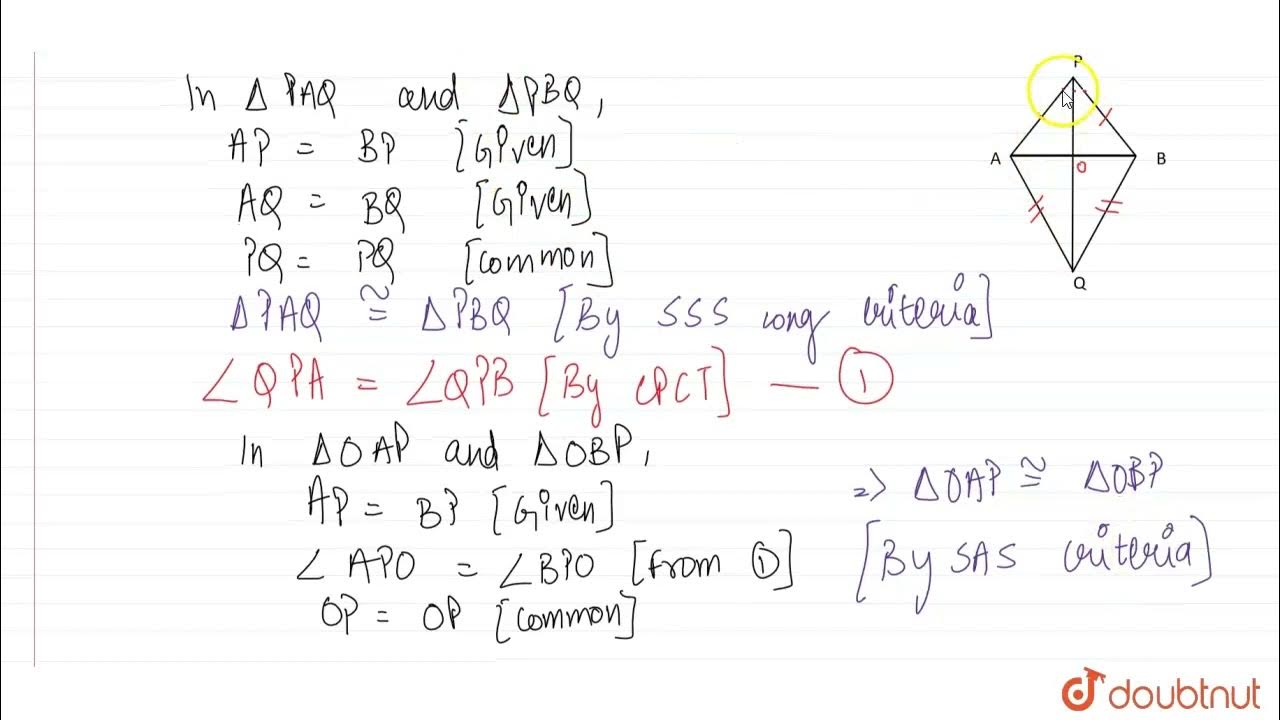 In Δ PAQ and ΔPBQ,
AP = BP [Given]
AQ = BQ [Given]
PQ = PQ [common]
ΔPAQ ≅ ΔPBQ [By SSS cong criteria]
∠QPA = ∠QPB [By CPCT] — ①
In ΔOAP and ΔOBP,
AP = BP [Given]
∠APO = ∠BPO [from ①]
OP = OP [common]
=> ΔOAP ≅ ΔOBP
[By SAS criteria]
P
A
O
B
Q
doubtnut